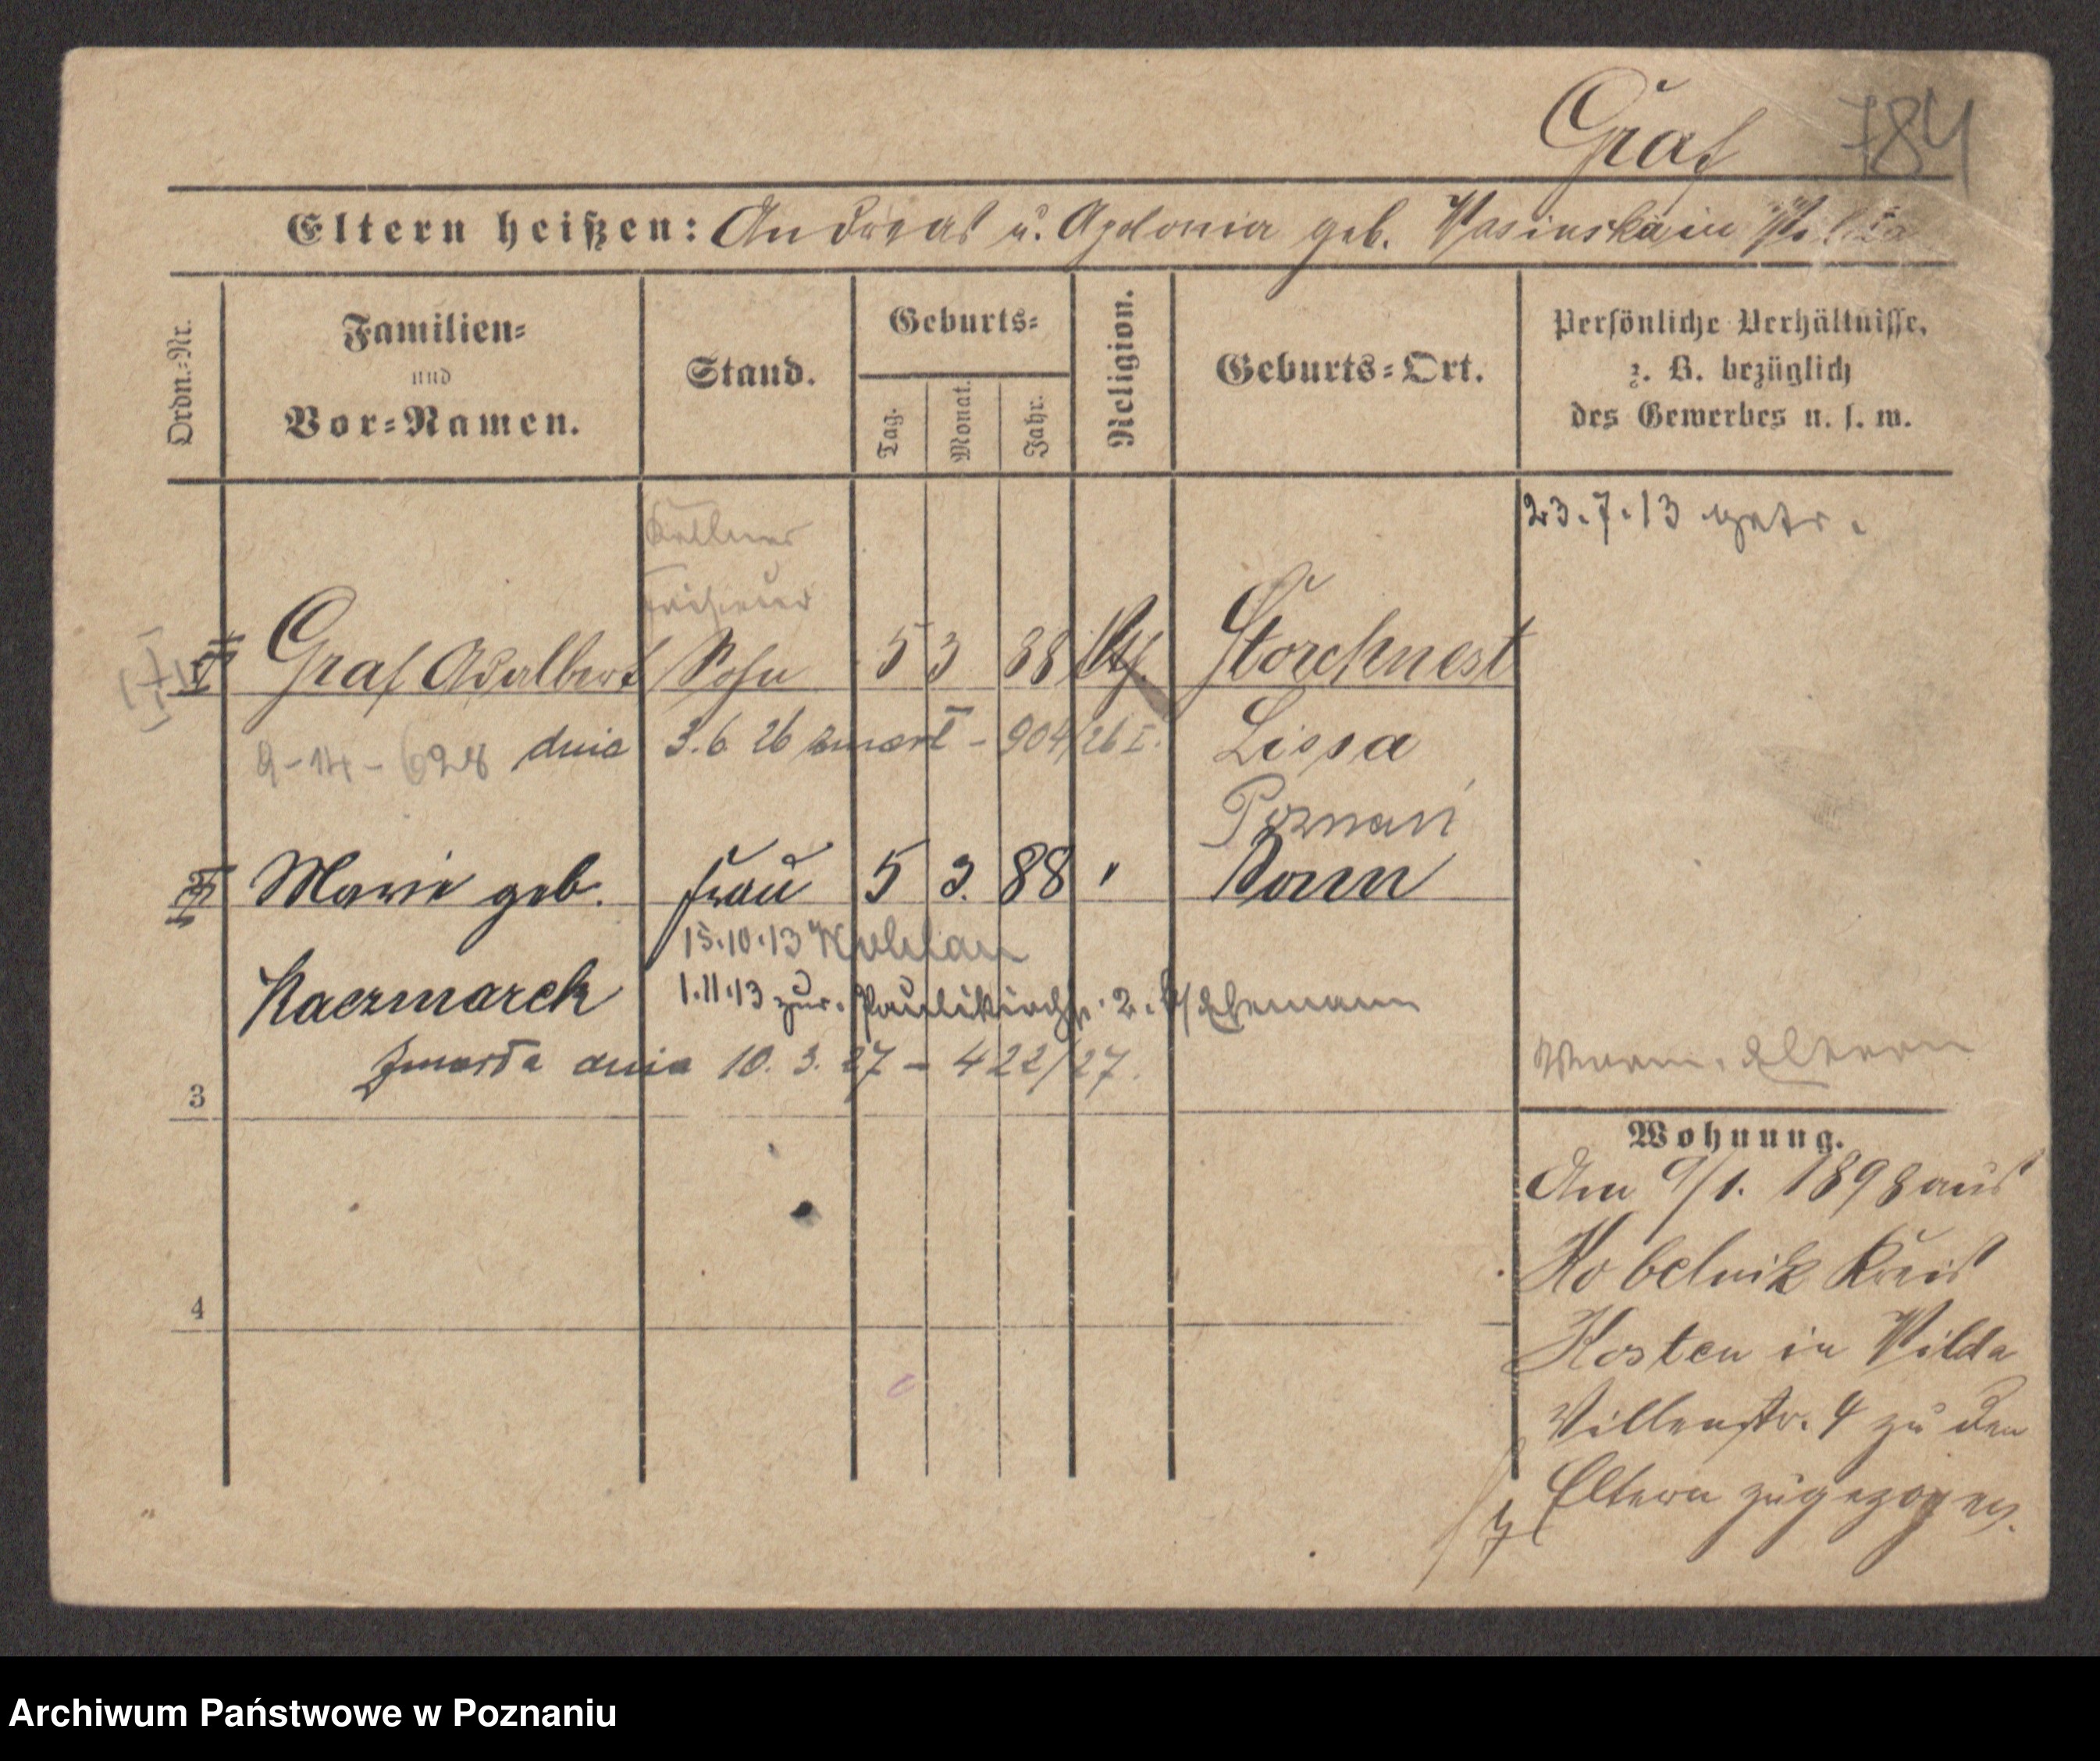 Graf 784
Eltern heißen: Andreas u. Apolonia geb. Wasinska in Wilda
Ordn.-Nr.
Familien-
und
Vor-Namen.
Stand.
Geburts-
Tag.
Monat.
Jahr.
Religion.
Geburts-Ort.
Persönliche Verhältnisse,
z. B. bezüglich
des Gewerbes u. s. w.
23.7.13 getr.
Kellner
Friseur
Graf Adalbert Sohn 5 3 88 Storchnest
9-14-628 dnia 3.6 26 zmarł - 904/26 I. Lissa
Poznań
Marie geb. Frau 5 3. 88 "
15.10.13
Kaczmarek 1.11.13 zur. Paulikirchstr. 2. b/Ehemann
Zmarła dnia 10. 3. 27 - 422/27.
Eltern
3
Wohnung.
Am 9/1. 1898 aus
Kobelnik Kreis
4
Kosten in Wilda
Villenstr. 4 zu den
Eltern zugezogen.
Archiwum Państwowe w Poznaniu